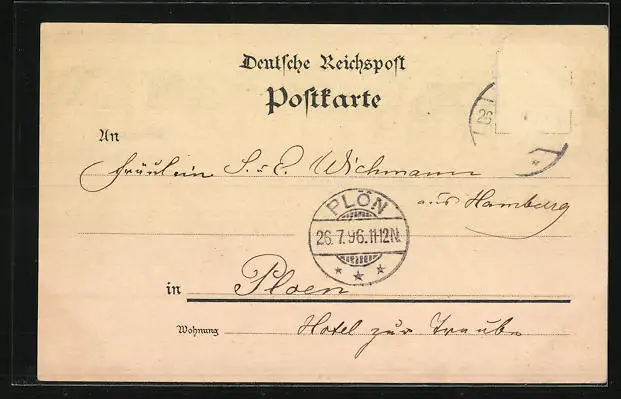 Deutsche Reichspost
Postkarte
An
Fräulein S. u. E. Wichmann
aus Hamburg
PLÖN
26.7.96.11-12N.
* * *
in Ploen
Wohnung Hotel zur Traube
26